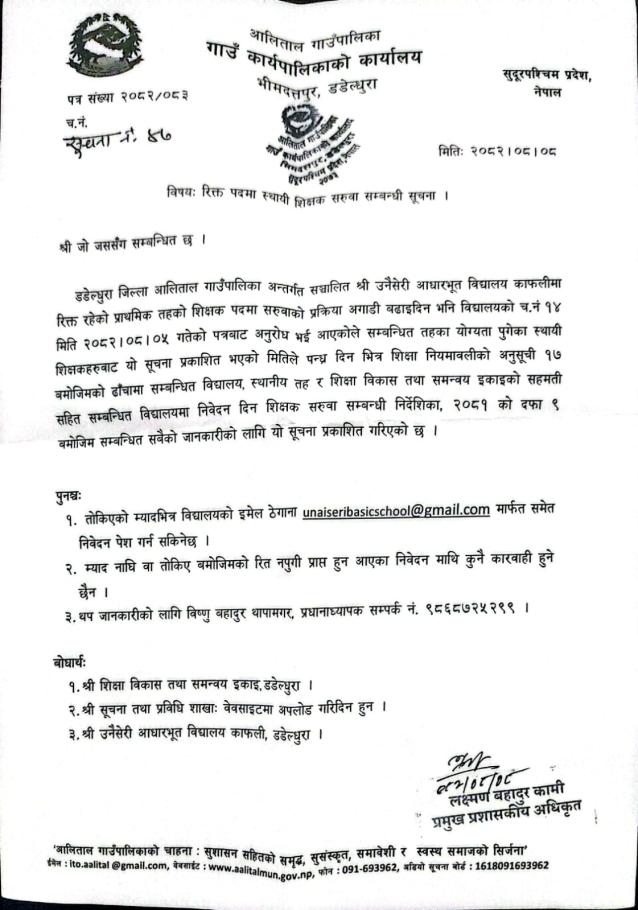 आलिताल गाउँपालिका
गाउँ कार्यपालिकाको कार्यालय
भीमदत्तपुर, डडेल्धुरा
सुदूरपश्चिम प्रदेश,
नेपाल
पत्र संख्या २०८२/०८३
च.नं.
सूचना नं. ४७
आलिताल गाउँपालिका
गाउँ कार्यपालिकाको कार्यालय
भिमदत्तपुर, डडेल्धुरा
सुदूरपश्चिम प्रदेश, नेपाल
२०७३
मितिः २०८२।०८।०८
विषयः रिक्त पदमा स्थायी शिक्षक सरुवा सम्बन्धी सूचना ।
श्री जो जससँग सम्बन्धित छ ।
डडेल्धुरा जिल्ला आलिताल गाउँपालिका अन्तर्गत सञ्चालित श्री उनैसेरी आधारभूत विद्यालय काफलीमा
रिक्त रहेको प्राथमिक तहको शिक्षक पदमा सरुवाको प्रक्रिया अगाडी बढाइदिन भनि विद्यालयको च.नं १४
मिति २०८२।०८।०५ गतेको पत्रबाट अनुरोध भई आएकोले सम्बन्धित तहका योग्यता पुगेका स्थायी
शिक्षकहरुबाट यो सूचना प्रकाशित भएको मितिले पन्ध्र दिन भित्र शिक्षा नियमावलीको अनुसूची १७
बमोजिमको ढाँचामा सम्बन्धित विद्यालय, स्थानीय तह र शिक्षा विकास तथा समन्वय इकाइको सहमती
सहित सम्बन्धित विद्यालयमा निवेदन दिन शिक्षक सरुवा सम्बन्धी निर्देशिका, २०८१ को दफा ९
बमोजिम सम्बन्धित सबैको जानकारीको लागि यो सूचना प्रकाशित गरिएको छ ।
पुनश्चः
१. तोकिएको म्यादभित्र विद्यालयको इमेल ठेगाना unaiseribasicschool@gmail.com मार्फत समेत
निवेदन पेश गर्न सकिनेछ ।
२. म्याद नाघि वा तोकिए बमोजिमको रित नपुगी प्राप्त हुन आएका निवेदन माथि कुनै कारवाही हुने
छैन ।
३. थप जानकारीको लागि विष्णु बहादुर थापामगर, प्रधानाध्यापक सम्पर्क नं. ९८६८७२५२९९ ।
बोधार्थः
१. श्री शिक्षा विकास तथा समन्वय इकाइ, डडेल्धुरा ।
२. श्री सूचना तथा प्रविधि शाखाः वेवसाइटमा अपलोड गरिदिन हुन ।
३. श्री उनैसेरी आधारभूत विद्यालय काफली, डडेल्धुरा ।
८२/०८/०८
लक्ष्मण बहादुर कामी
प्रमुख प्रशासकीय अधिकृत
'आलिताल गाउँपालिकाको चाहना : सुशासन सहितको समृद्ध, सुसंस्कृत, समावेशी र स्वस्थ समाजको सिर्जना'
ईमेल : ito.aalital @gmail.com, वेवसाईट : www.aalitalmun.gov.np, फोन : 091-693962, अडियो सूचना बोर्ड : 1618091693962